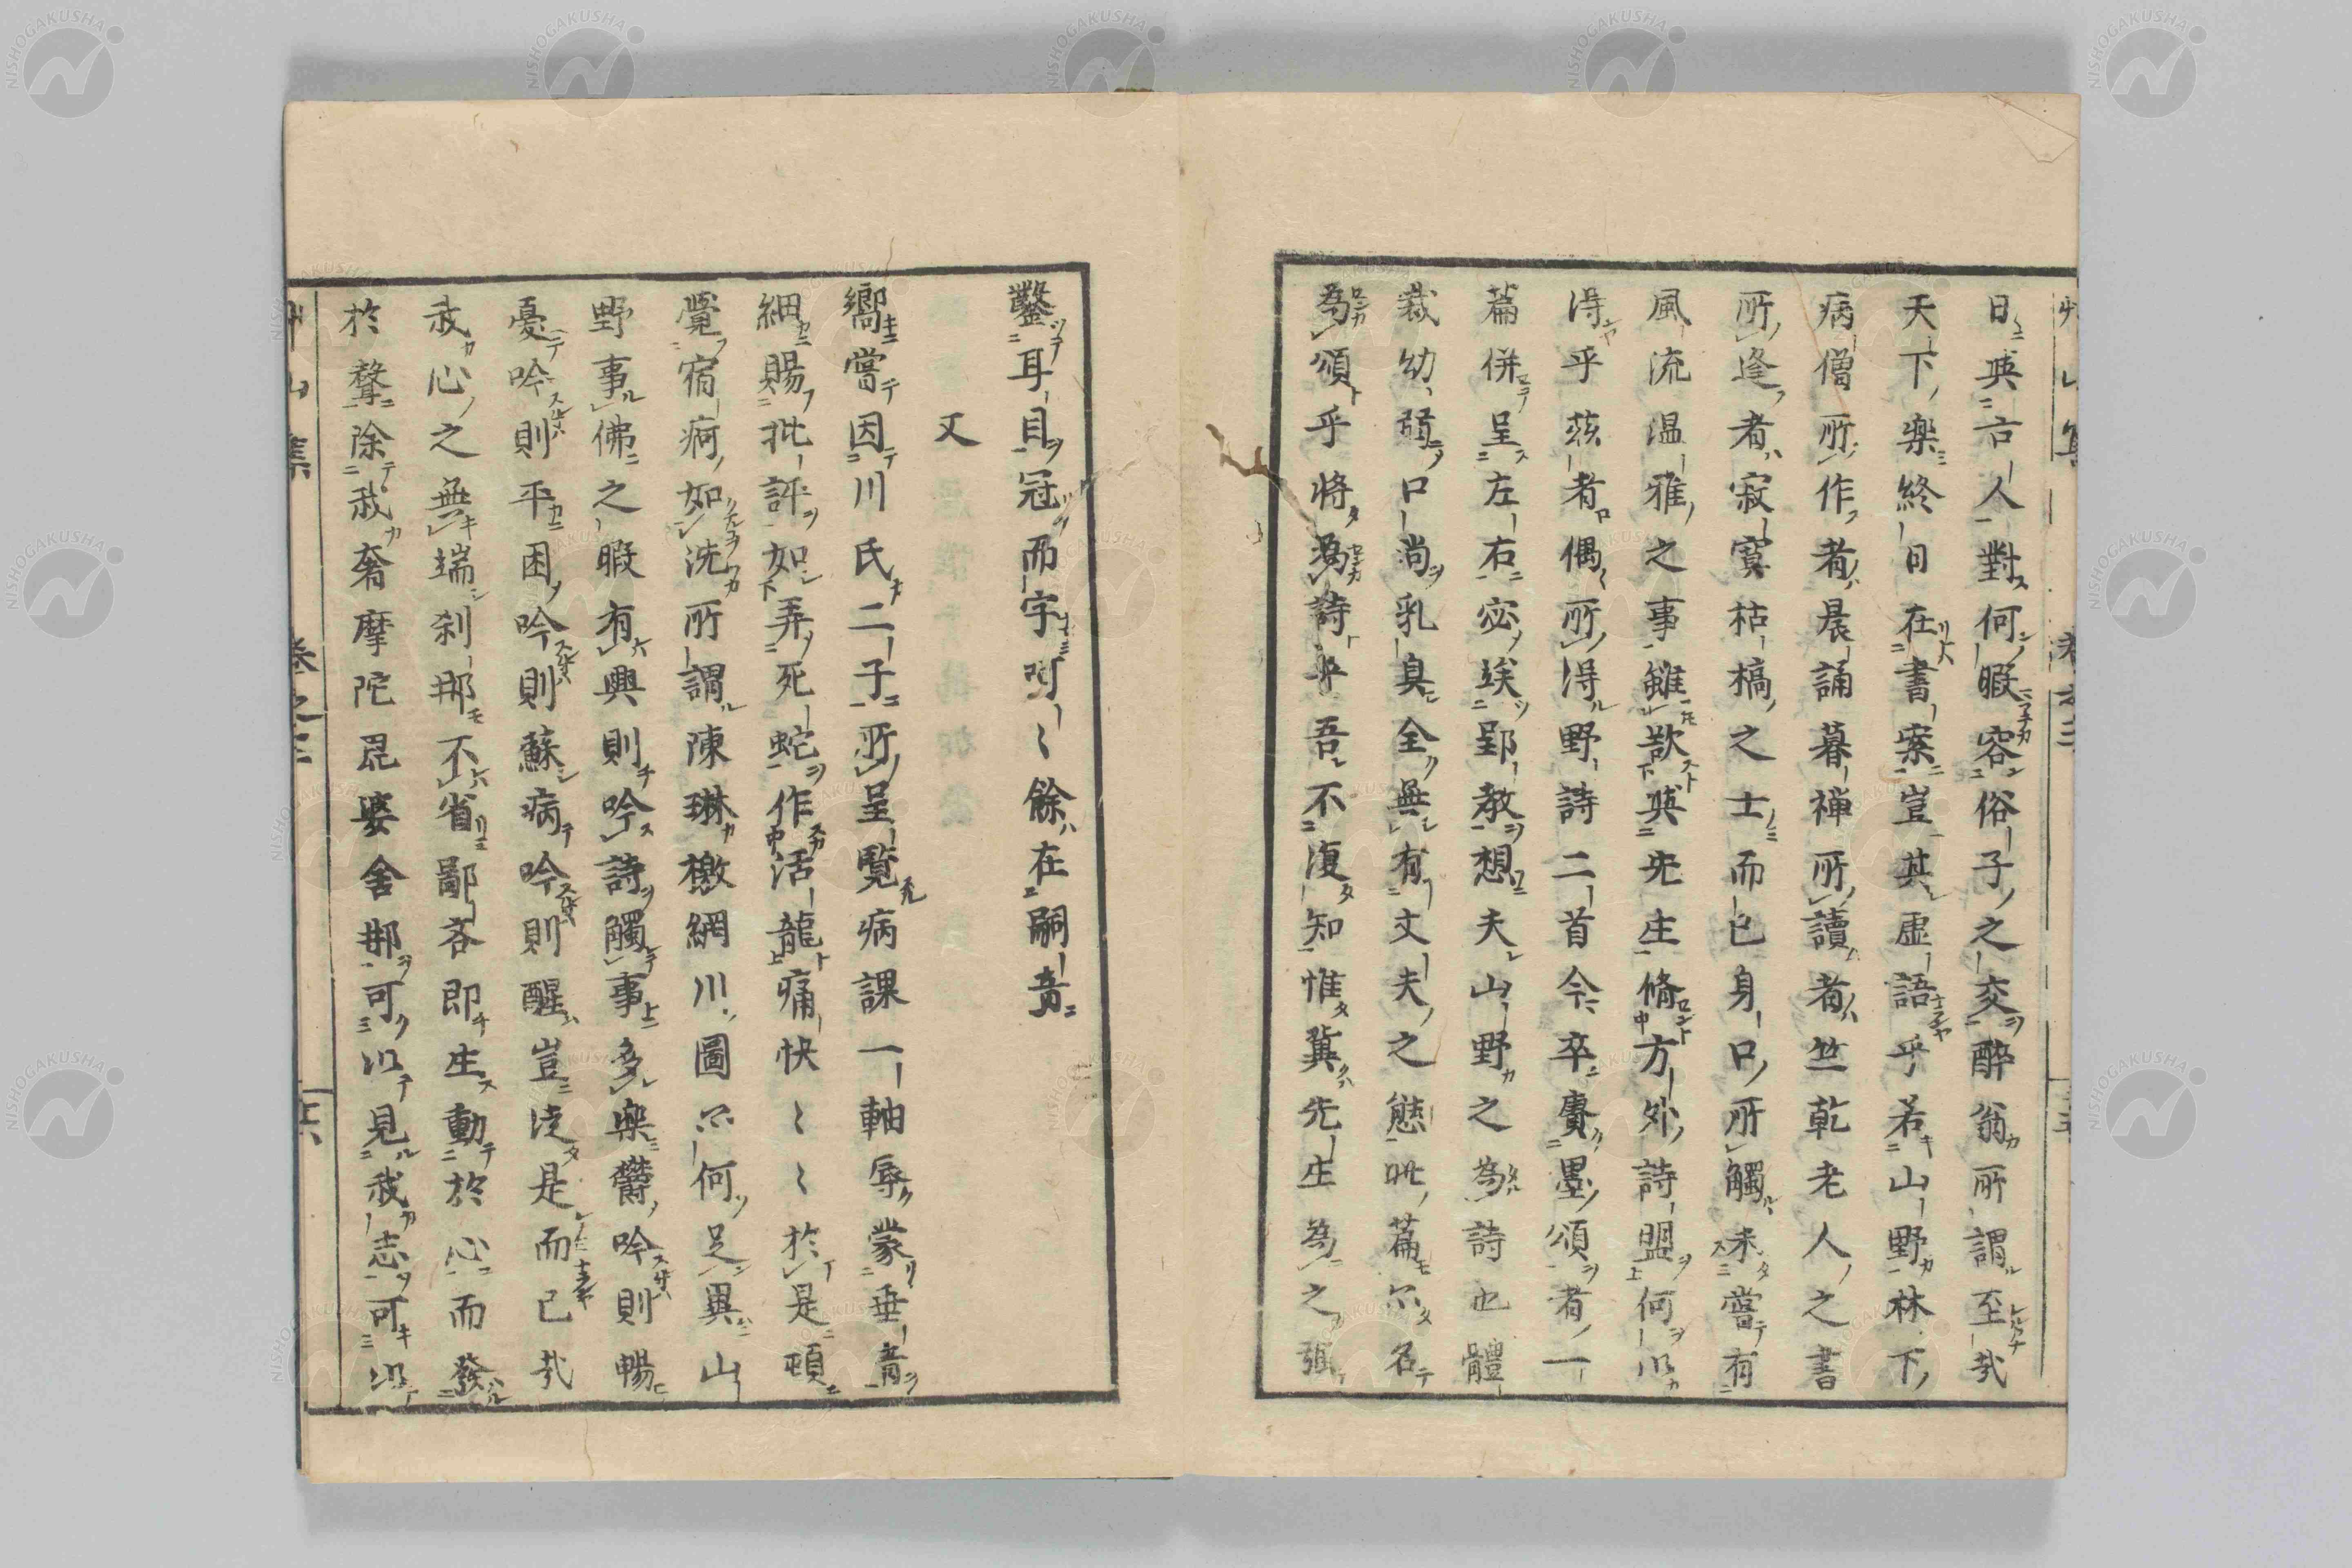 日與古人對何暇容俗子之交醉翁所謂至哉
天下樂終日在書案豈其虛語乎若山野林下
病僧所作者晨誦暮禪所讀者竺乾老人之書
所逢者寂寞枯槁之士而已身口所觸未嘗有
風流温雅之事雖欲與先生脩方外詩盟何以
得乎茲者偶所得野詩二首今卒賡墨頌者一
篇併呈左右宓竢郢教想夫山野之為詩也體
裁幼弱口尚乳臭全無有丈夫之態此篇尒名
為頌乎將為詩乎吾不復知惟冀先生為之
鑿耳目冠而字呵〻餘在嗣音
又
嚮嘗因川氏二子所呈覧病課一軸辱蒙垂青
細賜批評如弄死蛇作活龍痛快〻〻於是頓
覺宿痾如洗所謂陳琳檄網川圖尒何足異山
野事佛之暇有興則吟詩觸事多樂欝吟則暢
憂吟則平困吟則蘇病吟則醒豈徒是而已哉
我心之無端刹那不省鄙吝即生動於心而發
於聲除我奢摩陀毘婆舍那可以見我志可以
艸山集
卷之三